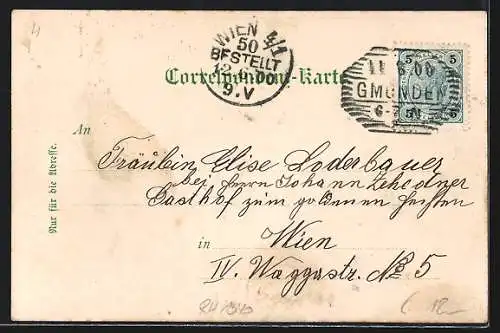 WIEN 4/1
50
BESTELLT
9.V
Correspondenz-Karte
5 5
GMUNDEN
5 5
An
Fräulein Elise Loderbauer
bei Herrn Johann Zehedner
Gasthof zum goldenen
in Wien
IV. Waggastr. No 5
Nur für die Adresse.